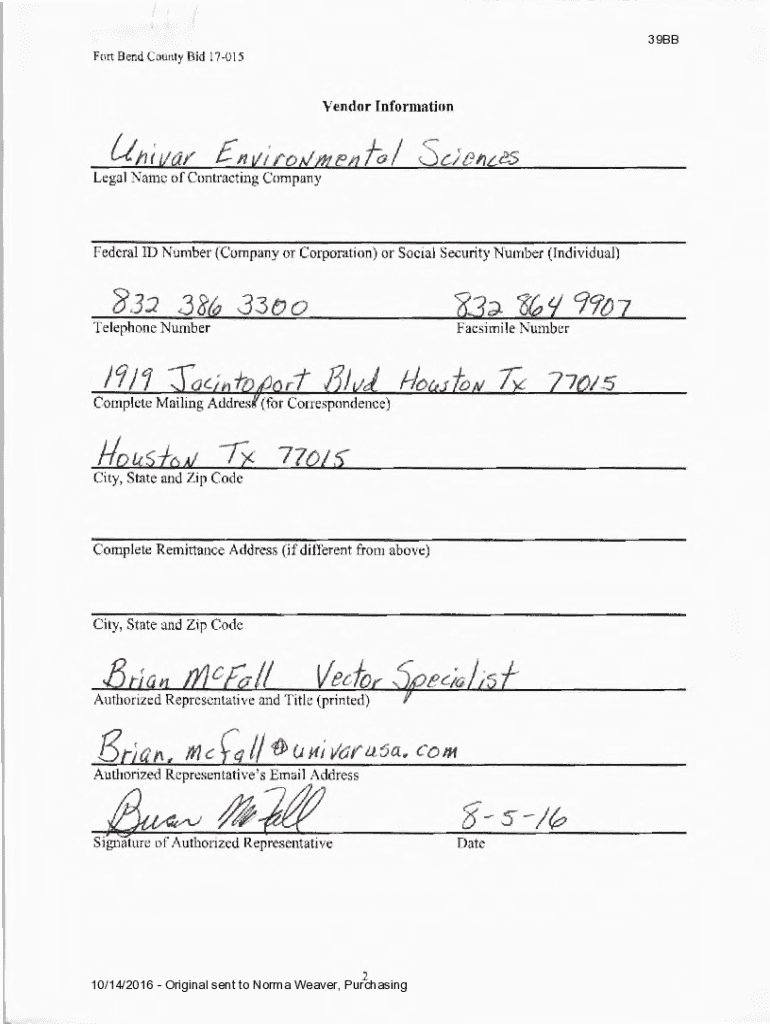 39BB
Fort Bend County Bid 17-015
Vendor Information
Univar Environmental Sciences
Legal Name of Contracting Company
Federal ID Number (Company or Corporation) or Social Security Number (Individual)
832 386 3300 832 864 9907
Telephone Number Facsimile Number
1919 Jacintoport Blvd Houston Tx 77015
Complete Mailing Address (for Correspondence)
Houston Tx 77015
City, State and Zip Code
Complete Remittance Address (if different from above)
City, State and Zip Code
Brian McFall Vector Specialist
Authorized Representative and Title (printed)
Brian.mcfall@univarusa.com
Authorized Representative's Email Address
Brian McFall 8-5-16
Signature of Authorized Representative Date
2
10/14/2016 - Original sent to Norma Weaver, Purchasing